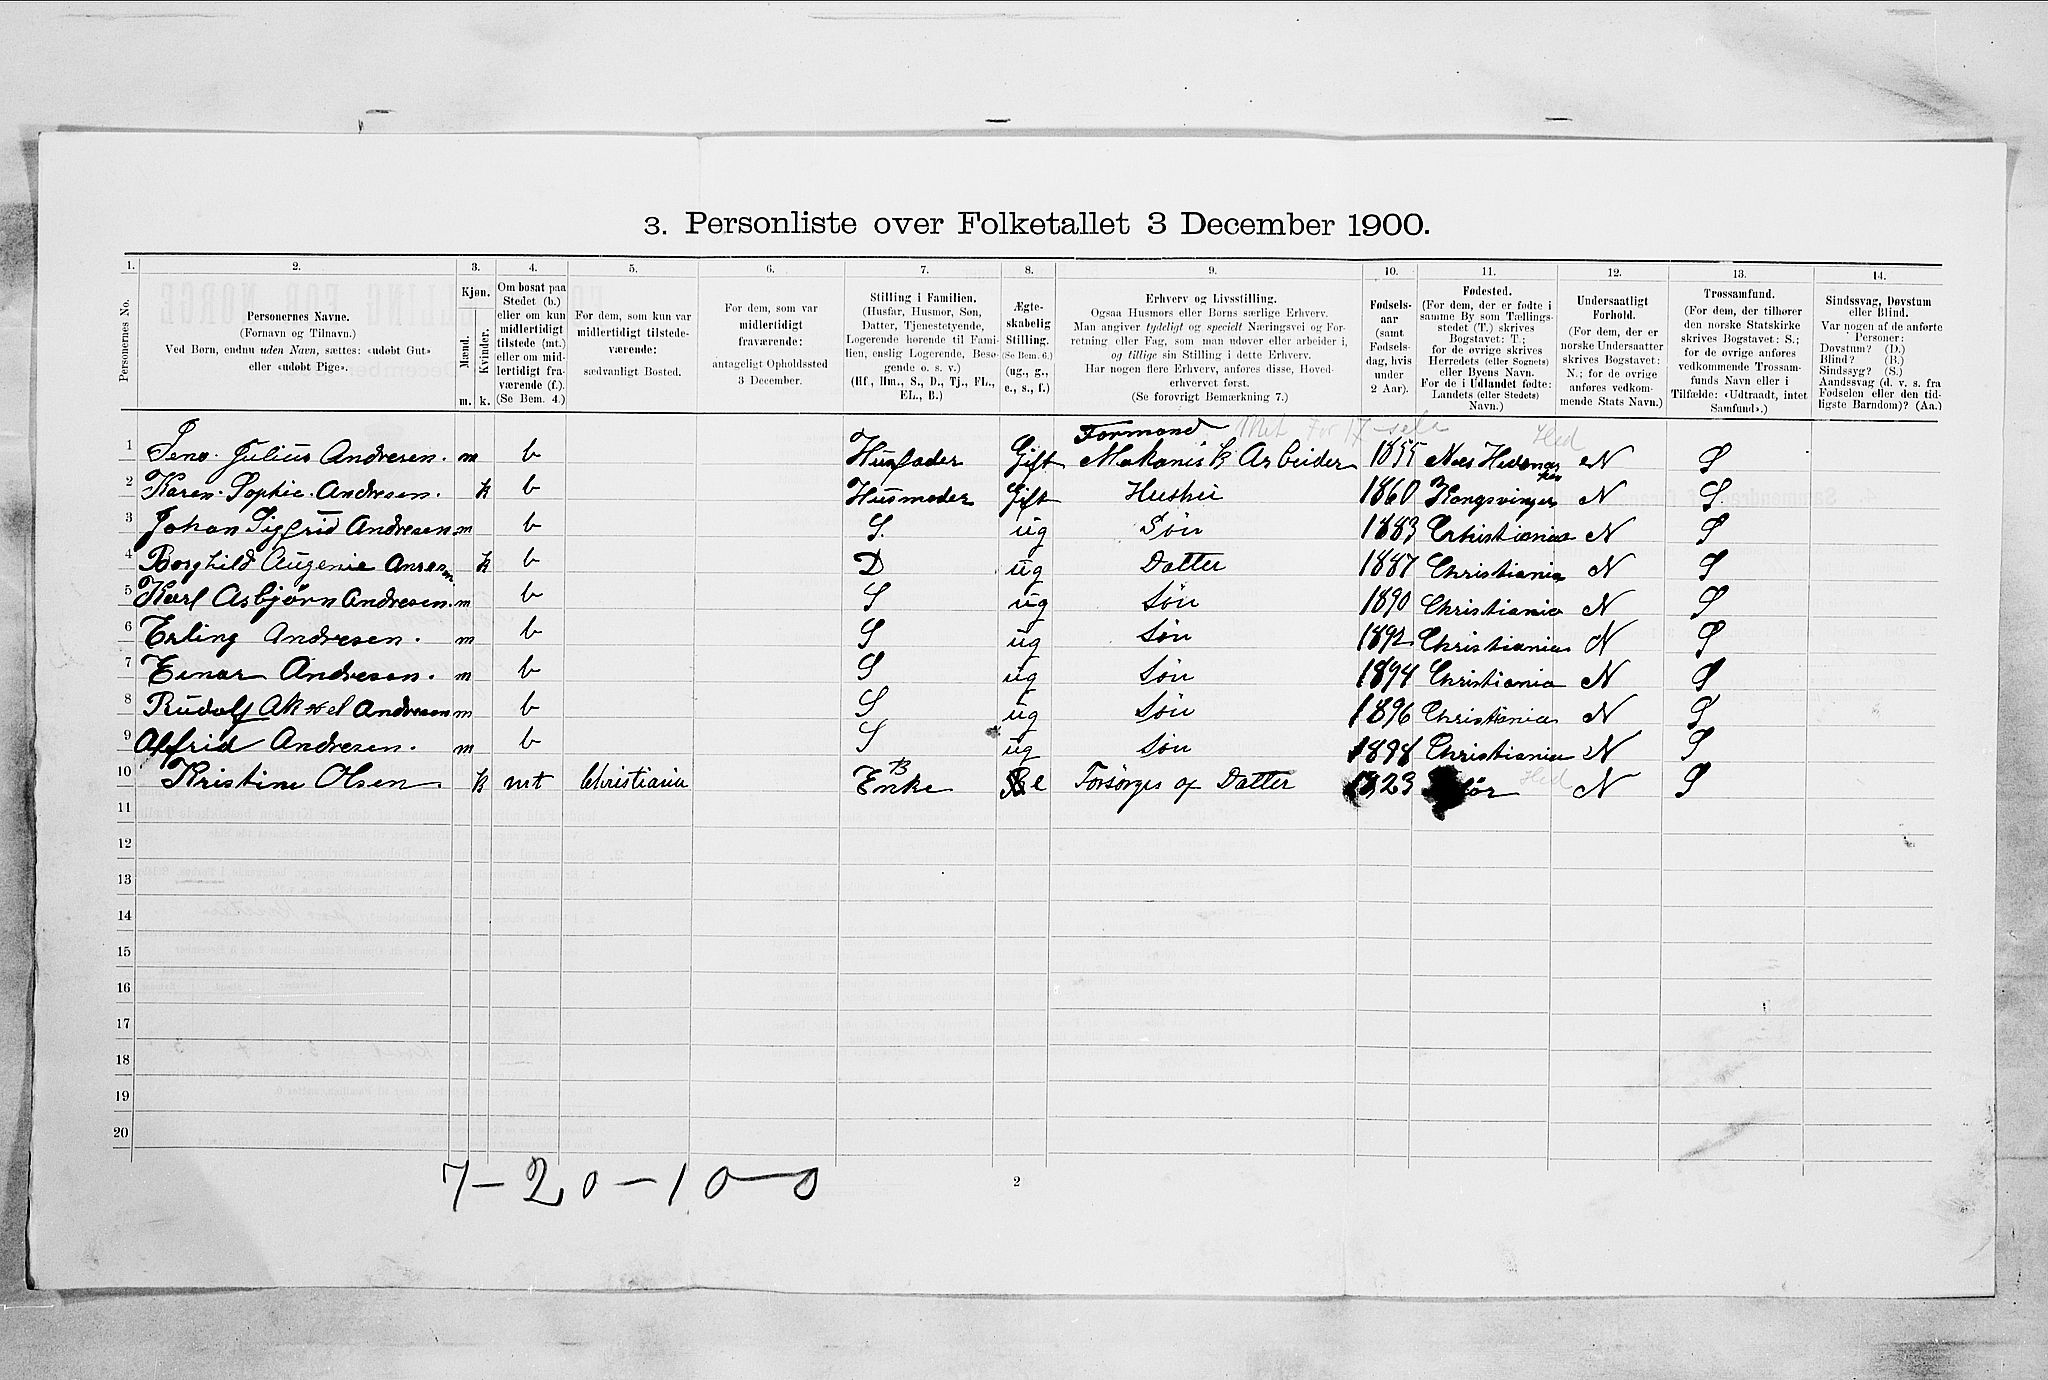 3. Personliste over Folketallet 3 December 1900.
1. 2. 3. 4. 5. 6. 7. 8. 9. 10. 11. 12. 13. 14.
Personernes No.
Personernes Navne.
(Fornavn og Tilnavn.)
Ved Børn, endnu uden Navn, sættes: «udøbt Gut»
eller «udøbt Pige».
Kjøn.
Mænd.
Kvinder.
m. k.
Om bosat paa
Stedet (b.)
eller om kun
midlertidigt
tilstede (mt.)
eller om mid-
lertidigt fra-
værende (f.).
(Se Bem. 4.)
For dem, som kun var
midlertidigt tilstede-
værende:
sædvanligt Bosted.
For dem, som var
midlertidigt
fraværende:
antageligt Opholdssted
3 December.
Stilling i Familien.
(Husfar, Husmor, Søn,
Datter, Tjenestetyende,
Logerende hørende til Fami-
lien, enslig Logerende, Besø-
gende o. s. v.)
(Hf., Hm., S., D., Tj., FL.,
EL., B.)
Ægte-
skabelig
Stilling.
(Se Bem. 6.)
(ug., g.,
e., s., f.)
Erhverv og Livsstilling.
Ogsaa Husmors eller Børns særlige Erhverv.
Man angiver tydeligt og specielt Næringsvei og For-
retning eller Fag, som man udøver eller arbeider i,
og tillige sin Stilling i dette Erhverv.
Har nogen flere Erhverv, anføres disse, Hoved-
erhvervet først.
(Se forøvrigt Bemærkning 7.)
Fødsels-
aar
(samt
Fødsels-
dag, hvis
under
2 Aar).
Fødested.
(For dem, der er fødte i
samme By som Tællings-
stedet (T.) skrives
Bogstavet: T.;
for de øvrige skrives
Herredets (eller Sognets)
eller Byens Navn.
For de i Udlandet fødte:
Landets (eller Stedets)
Navn.)
Undersaatligt
Forhold.
(For dem, der er
norske Undersaatter
skrives Bogstavet:
N.; for de øvrige
anføres vedkom-
mende Stats Navn.)
Trossamfund.
(For dem, der tilhører
den norske Statskirke
skrives Bogstavet: S.;
for de øvrige anføres
vedkommende Trossam-
funds Navn eller i
Tilfælde: «Udtraadt, intet
Samfund».)
Sindssvag, Døvstum
eller Blind.
Var nogen af de anførte
Personer:
Døvstum? (D.)
Blind? (B.)
Sindssyg? (S.)
Aandssvag (d. v. s. fra
Fødselen eller den tid-
ligste Barndom)? (Aa.)
Formand
Hed
1 Jens Julius Andresen. m b Husfader Gift Mekanisk Arbeider 1855 Næs Hedemarken N S
2 Karen Sophie Andresen. k b Husmoder Gift Husstel 1860 Kongsvinger N S
3 Johan Sigfrid Andresen m b S. ug Søn 1883 Christiania N S
4 Borghild Augenie Andresen k b D ug Datter 1887 Christiania N S
5 Karl Asbjørn Andresen. m b S ug Søn 1890 Christiania N S
6 Erling Andresen. m b S ug Søn 1892 Christiania N S
7 Einar Andresen. m b S ug Søn 1894 Christiania N S
8 Rudolf Aksel Andresen m b S ug Søn 1896 Christiania N S
9 Alfrid Andresen. m b S ug Søn 1898 Christiania N S
10 Kristine Olsen. k mt Christiania Enke B e Forsörges af Datter 1823 Hed N S
11
12
13
14
15
16
17
18
19
20
7-20-10-0
2